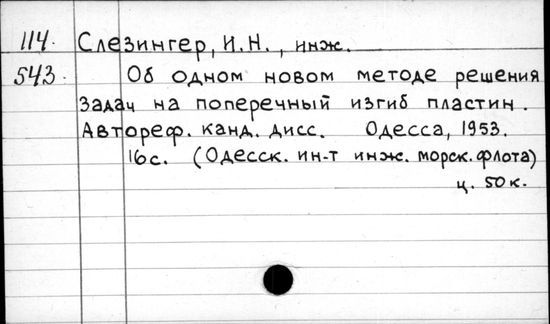 114. Слезингер, И.Н., инж.
543. Об одном новом методе решения
задач на поперечный изгиб пластин.
Автореф. канд. дисс. Одесса, 1953.
16с. (Одесск. ин-т инж. морск. флота)
ц. 50к.